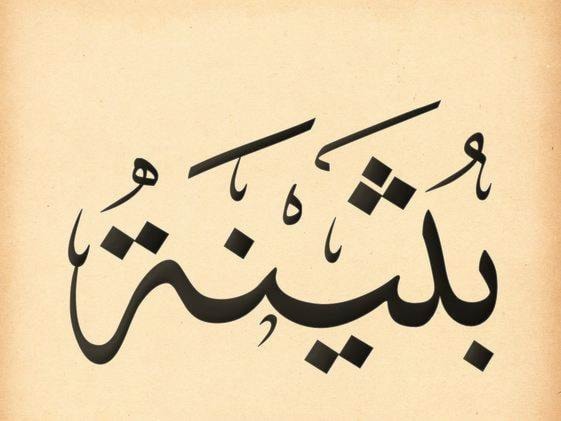 بُثَيْنَةُ